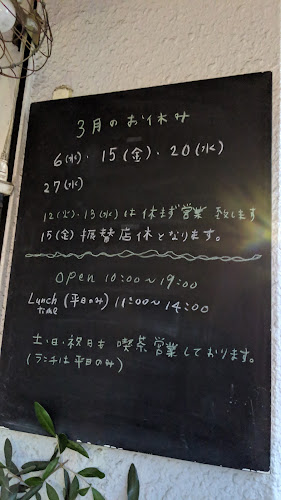 3月のお休み
6(水)・15(金)・20(水)
27(水)
12(火)・13(水)は休まず営業致します
15(金)振替店休となります。
Open 10:00〜19:00
Lunch time (平日のみ) 11:00〜14:00
土・日・祝日も喫茶営業しております。
(ランチは平日のみ)